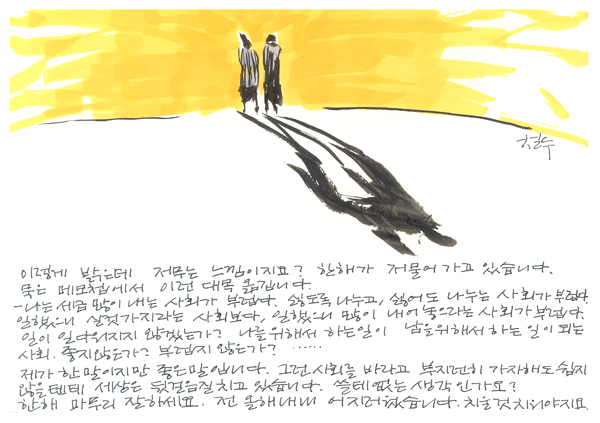 철수
이렇게 밝은데 저무는 느낌이지요? 한해가 저물어 가고 있습니다.
묵은 메모첩에서 이런 대목 옮깁니다.
- 나는 세금 많이 내는 사회가 부럽다. 싫도록 나누고, 싫어도 나누는 사회가 부럽다.
일했으니 실컷 가지라는 사회보다, 일했으니 많이 내어 놓으라는 사회가 부럽다.
일이 일다워지지 않겠는가? 나를위해서 하는일이 남을위해서 하는 일이 되는
사회. 좋지않은가? 부럽지 않은가? ......
제가 한 말이지만 좋은 말입니다. 그런 사회를 바라고 부지런히 가자해도 쉽지
않을텐데 세상은 뒷걸음질 치고 있습니다. 쓸데없는 생각 인가요?
한해 마무리 잘하세요. 전 올해내내 어지러웠습니다. 치울것 치워야지요.